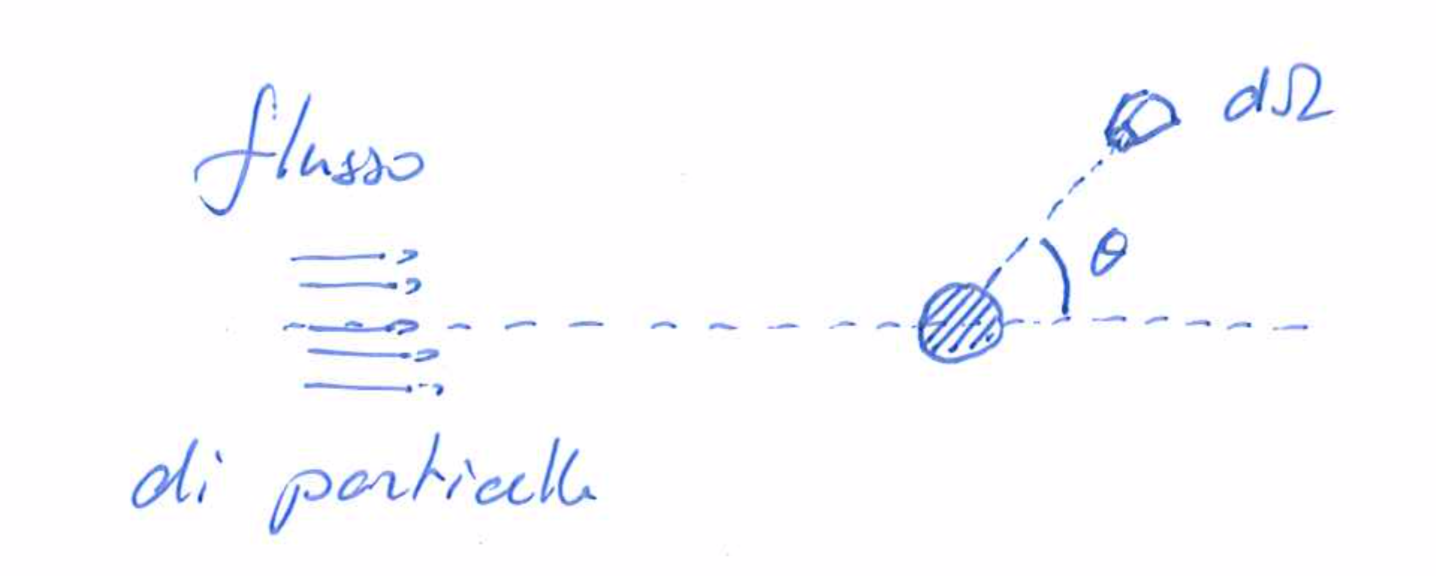 flusso
dΩ
θ
di particelle